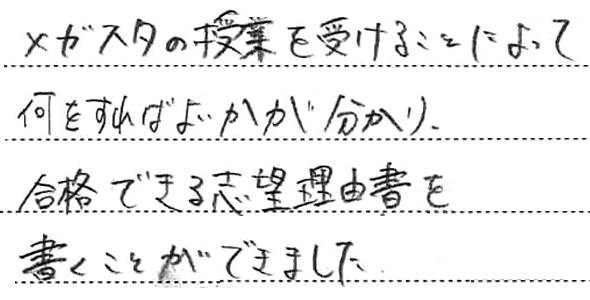 メガスタの授業を受けることによって
何をすればよいかが分かり、
合格できる志望理由書を
書くことができました